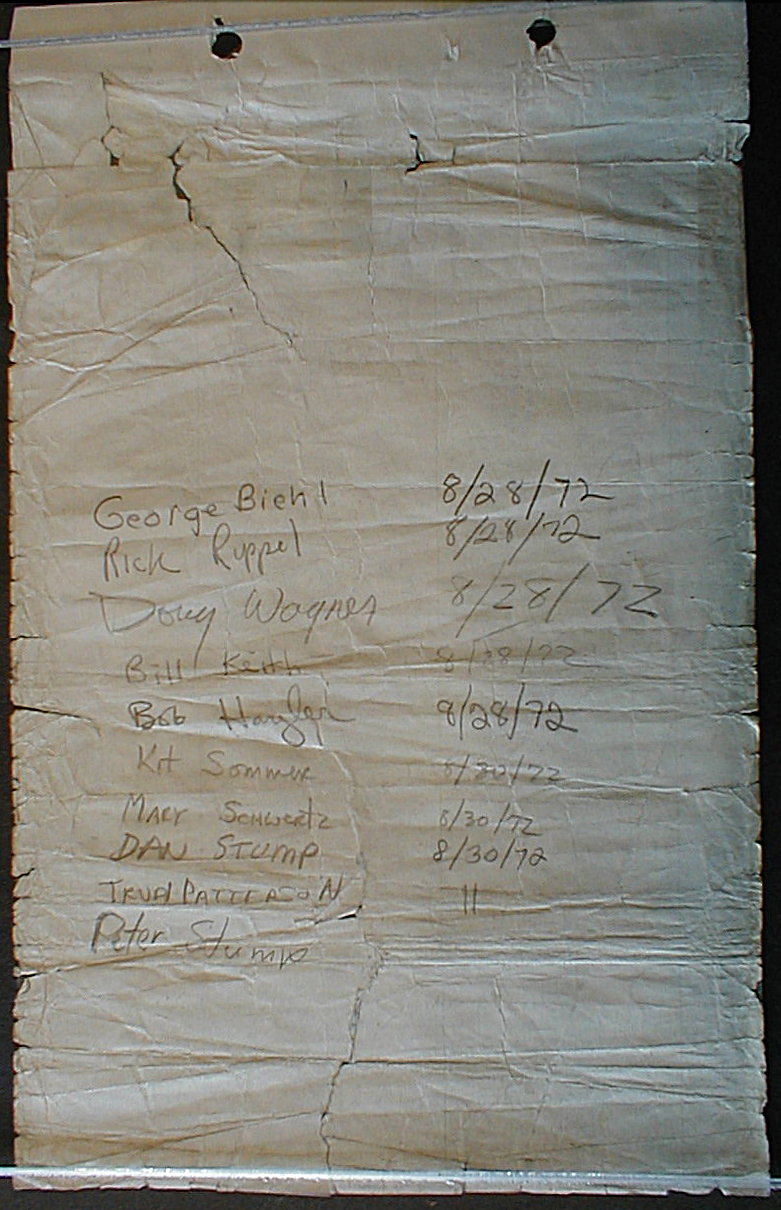 George Biehl 8/28/72
Rick Ruppel 8/28/72
Doug Wagner 8/28/72
Bill Keith 8/28/72
Bob 8/28/72
Kit Sommer 8/30/72
Mary Schwartz 8/30/72
DAN STUMP 8/30/72
PATTERSON "
Peter Stump